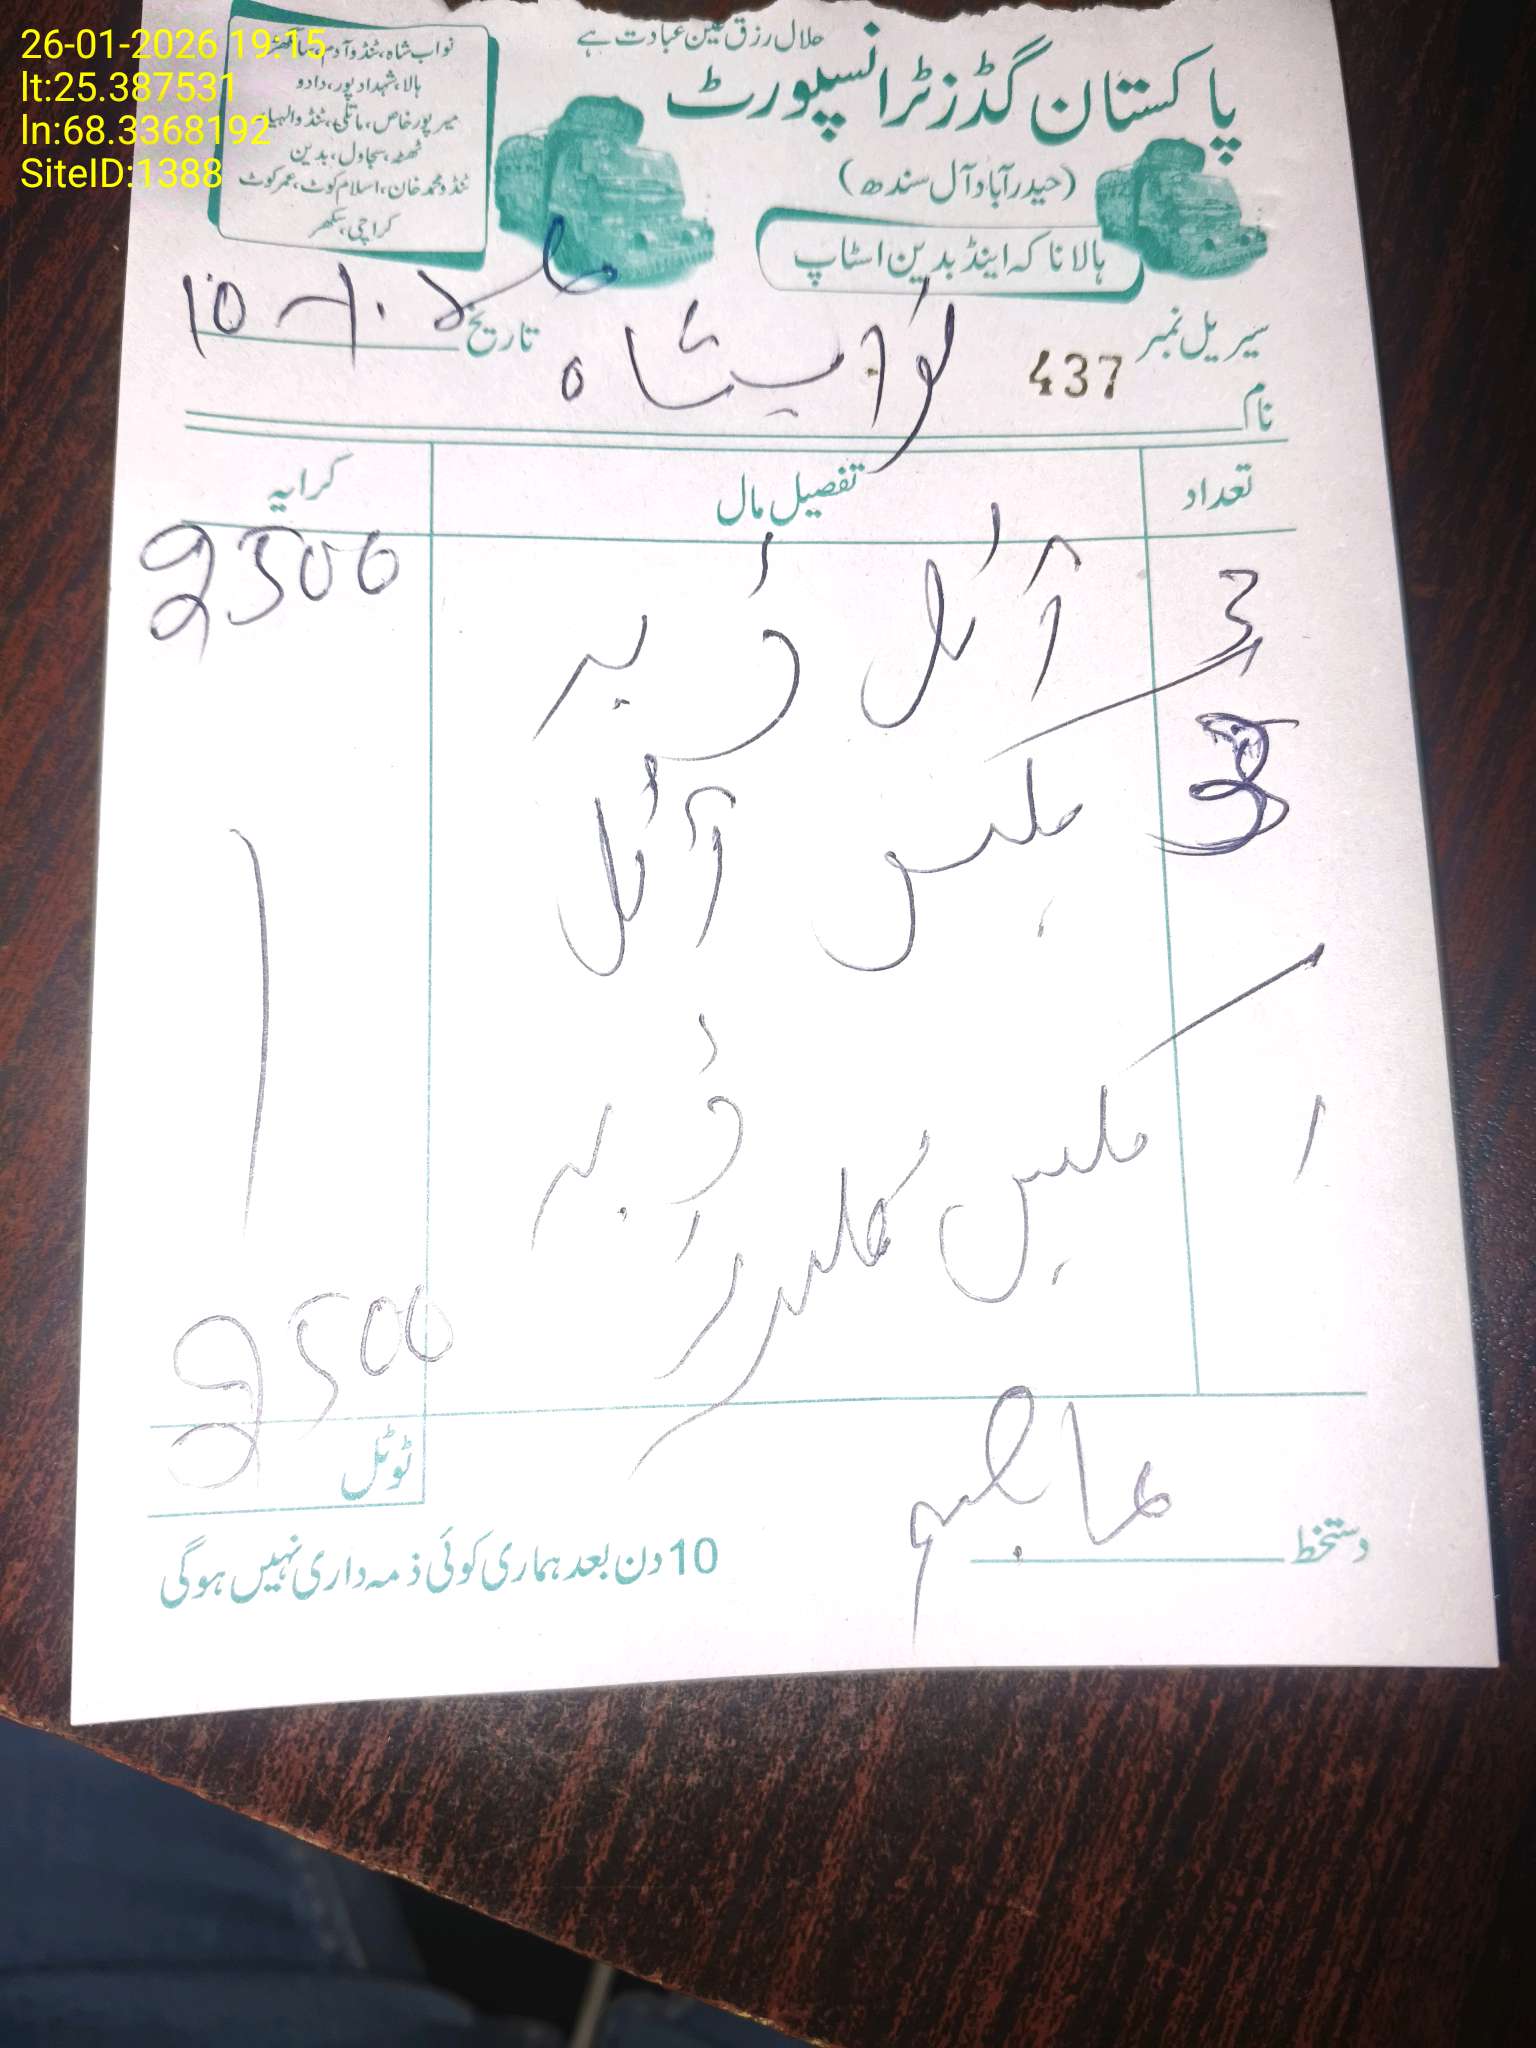 26-01-2026 19:15
lt:25.387531
ln:68.3368192
SiteID:1388
حلال رزق عین عبادت ہے
پاکستان گڈز ٹرانسپورٹ
(حیدرآباد آل سندھ)
ہالا ناکہ اینڈ بدین اسٹاپ
نواب شاہ، ٹنڈوآدم،
ہالا، شہدادپور، دادو
میرپورخاص، ماتلی، ٹنڈوالہیار
ٹھٹھہ، سجاول، بدین
ٹنڈومحمدخان، اسلام کوٹ، عمرکوٹ
کراچی، سکھر
سیریل نمبر 437
تاریخ
نام نوابشاہ
تعداد تفصیل مال کرایہ
3 آئل ڈبہ 2500
بکس آئل
ڈبہ
1 بکس
2500
ٹوٹل
دستخط
10 دن بعد ہماری کوئی ذمہ داری نہیں ہوگی